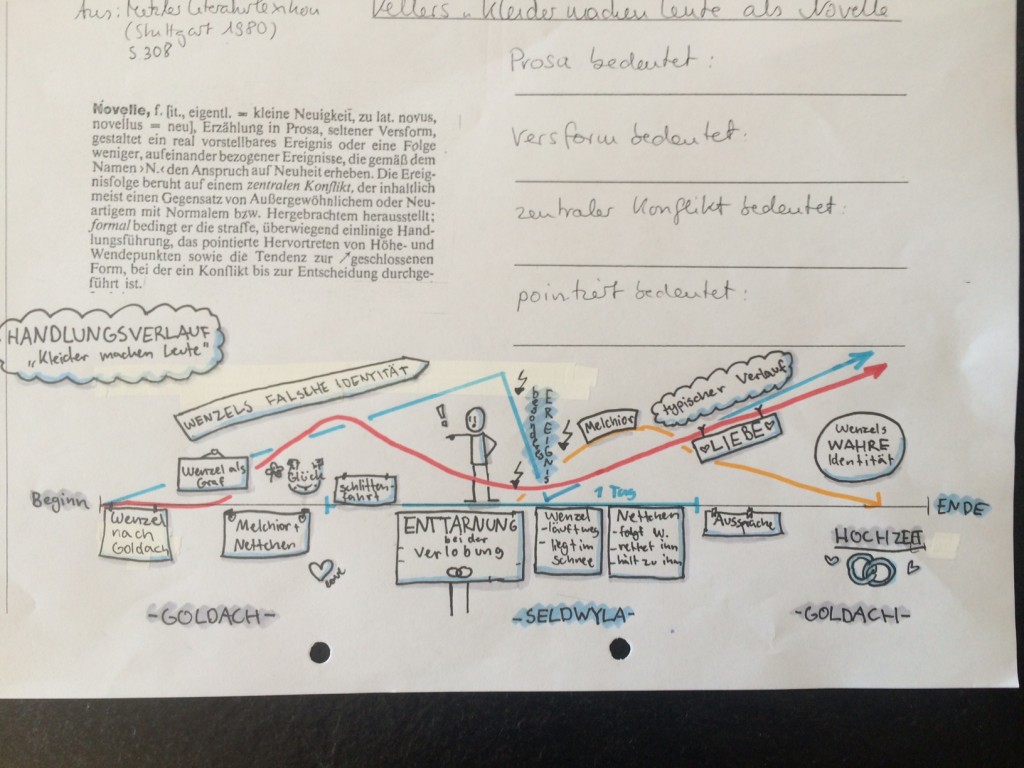 Aus: Metzler Literaturlexikon
(Stuttgart 1980)
S 308
Kellers „Kleider machen Leute als Novelle
Novelle, f. [it., eigentl. = kleine Neuigkeit, zu lat. novus,
novellus = neu], Erzählung in Prosa, seltener Versform,
gestaltet ein real vorstellbares Ereignis oder eine Folge
weniger, aufeinander bezogener Ereignisse, die gemäß dem
Namen ›N.‹ den Anspruch auf Neuheit erheben. Die Ereig-
nisfolge beruht auf einem zentralen Konflikt, der inhaltlich
meist einen Gegensatz von Außergewöhnlichem oder Neu-
artigem mit Normalem bzw. Hergebrachtem herausstellt;
formal bedingt er die straffe, überwiegend einlinige Hand-
lungsführung, das pointierte Hervortreten von Höhe- und
Wendepunkten sowie die Tendenz zur ↗geschlossenen
Form, bei der ein Konflikt bis zur Entscheidung durchge-
führt ist.
Prosa bedeutet:
Versform bedeutet:
zentraler Konflikt bedeutet:
pointiert bedeutet:
HANDLUNGSVERLAUF
„Kleider machen Leute"
WENZELS FALSCHE IDENTITÄT
besonderes
EREIGNIS
Melchior
typischer Verlauf
♡LIEBE♡
Wenzels
WAHRE
Identität
Wenzel als
Graf
Glück
Schlitten-
fahrt
!
1 Tag
Beginn
ENDE
Wenzel
nach
Goldach
Melchior +
Nettchen
love
ENTTARNUNG
bei der
Verlobung
Wenzel
- läuft weg
- liegt im
Schnee
Nettchen
- folgt W.
- rettet ihn
- hält zu ihm
Aussprache
HOCHZEIT
-GOLDACH-
-SELDWYLA-
-GOLDACH-